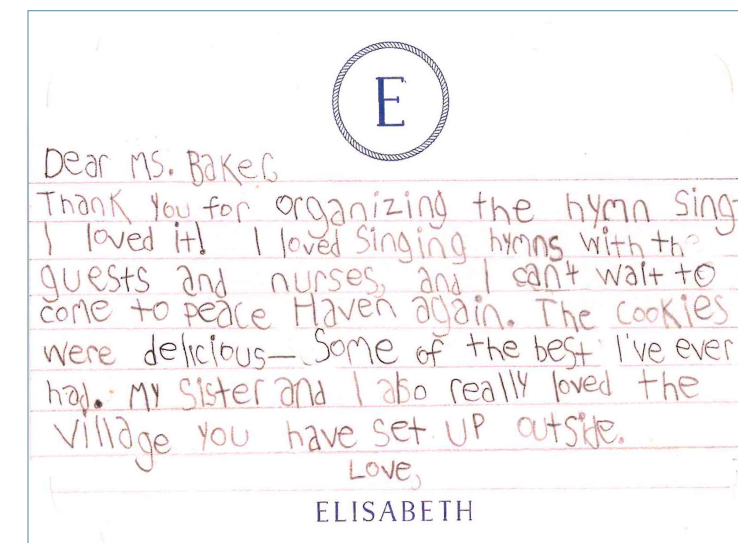 E
Dear Ms. Baker,
Thank you for organizing the hymn sing.
I loved it! I loved singing hymns with the
guests and nurses, and I can't wait to
come to peace Haven again. The cookies
were delicious— Some of the best I've ever
had. My sister and I also really loved the
village you have set up outside.
Love,
ELISABETH